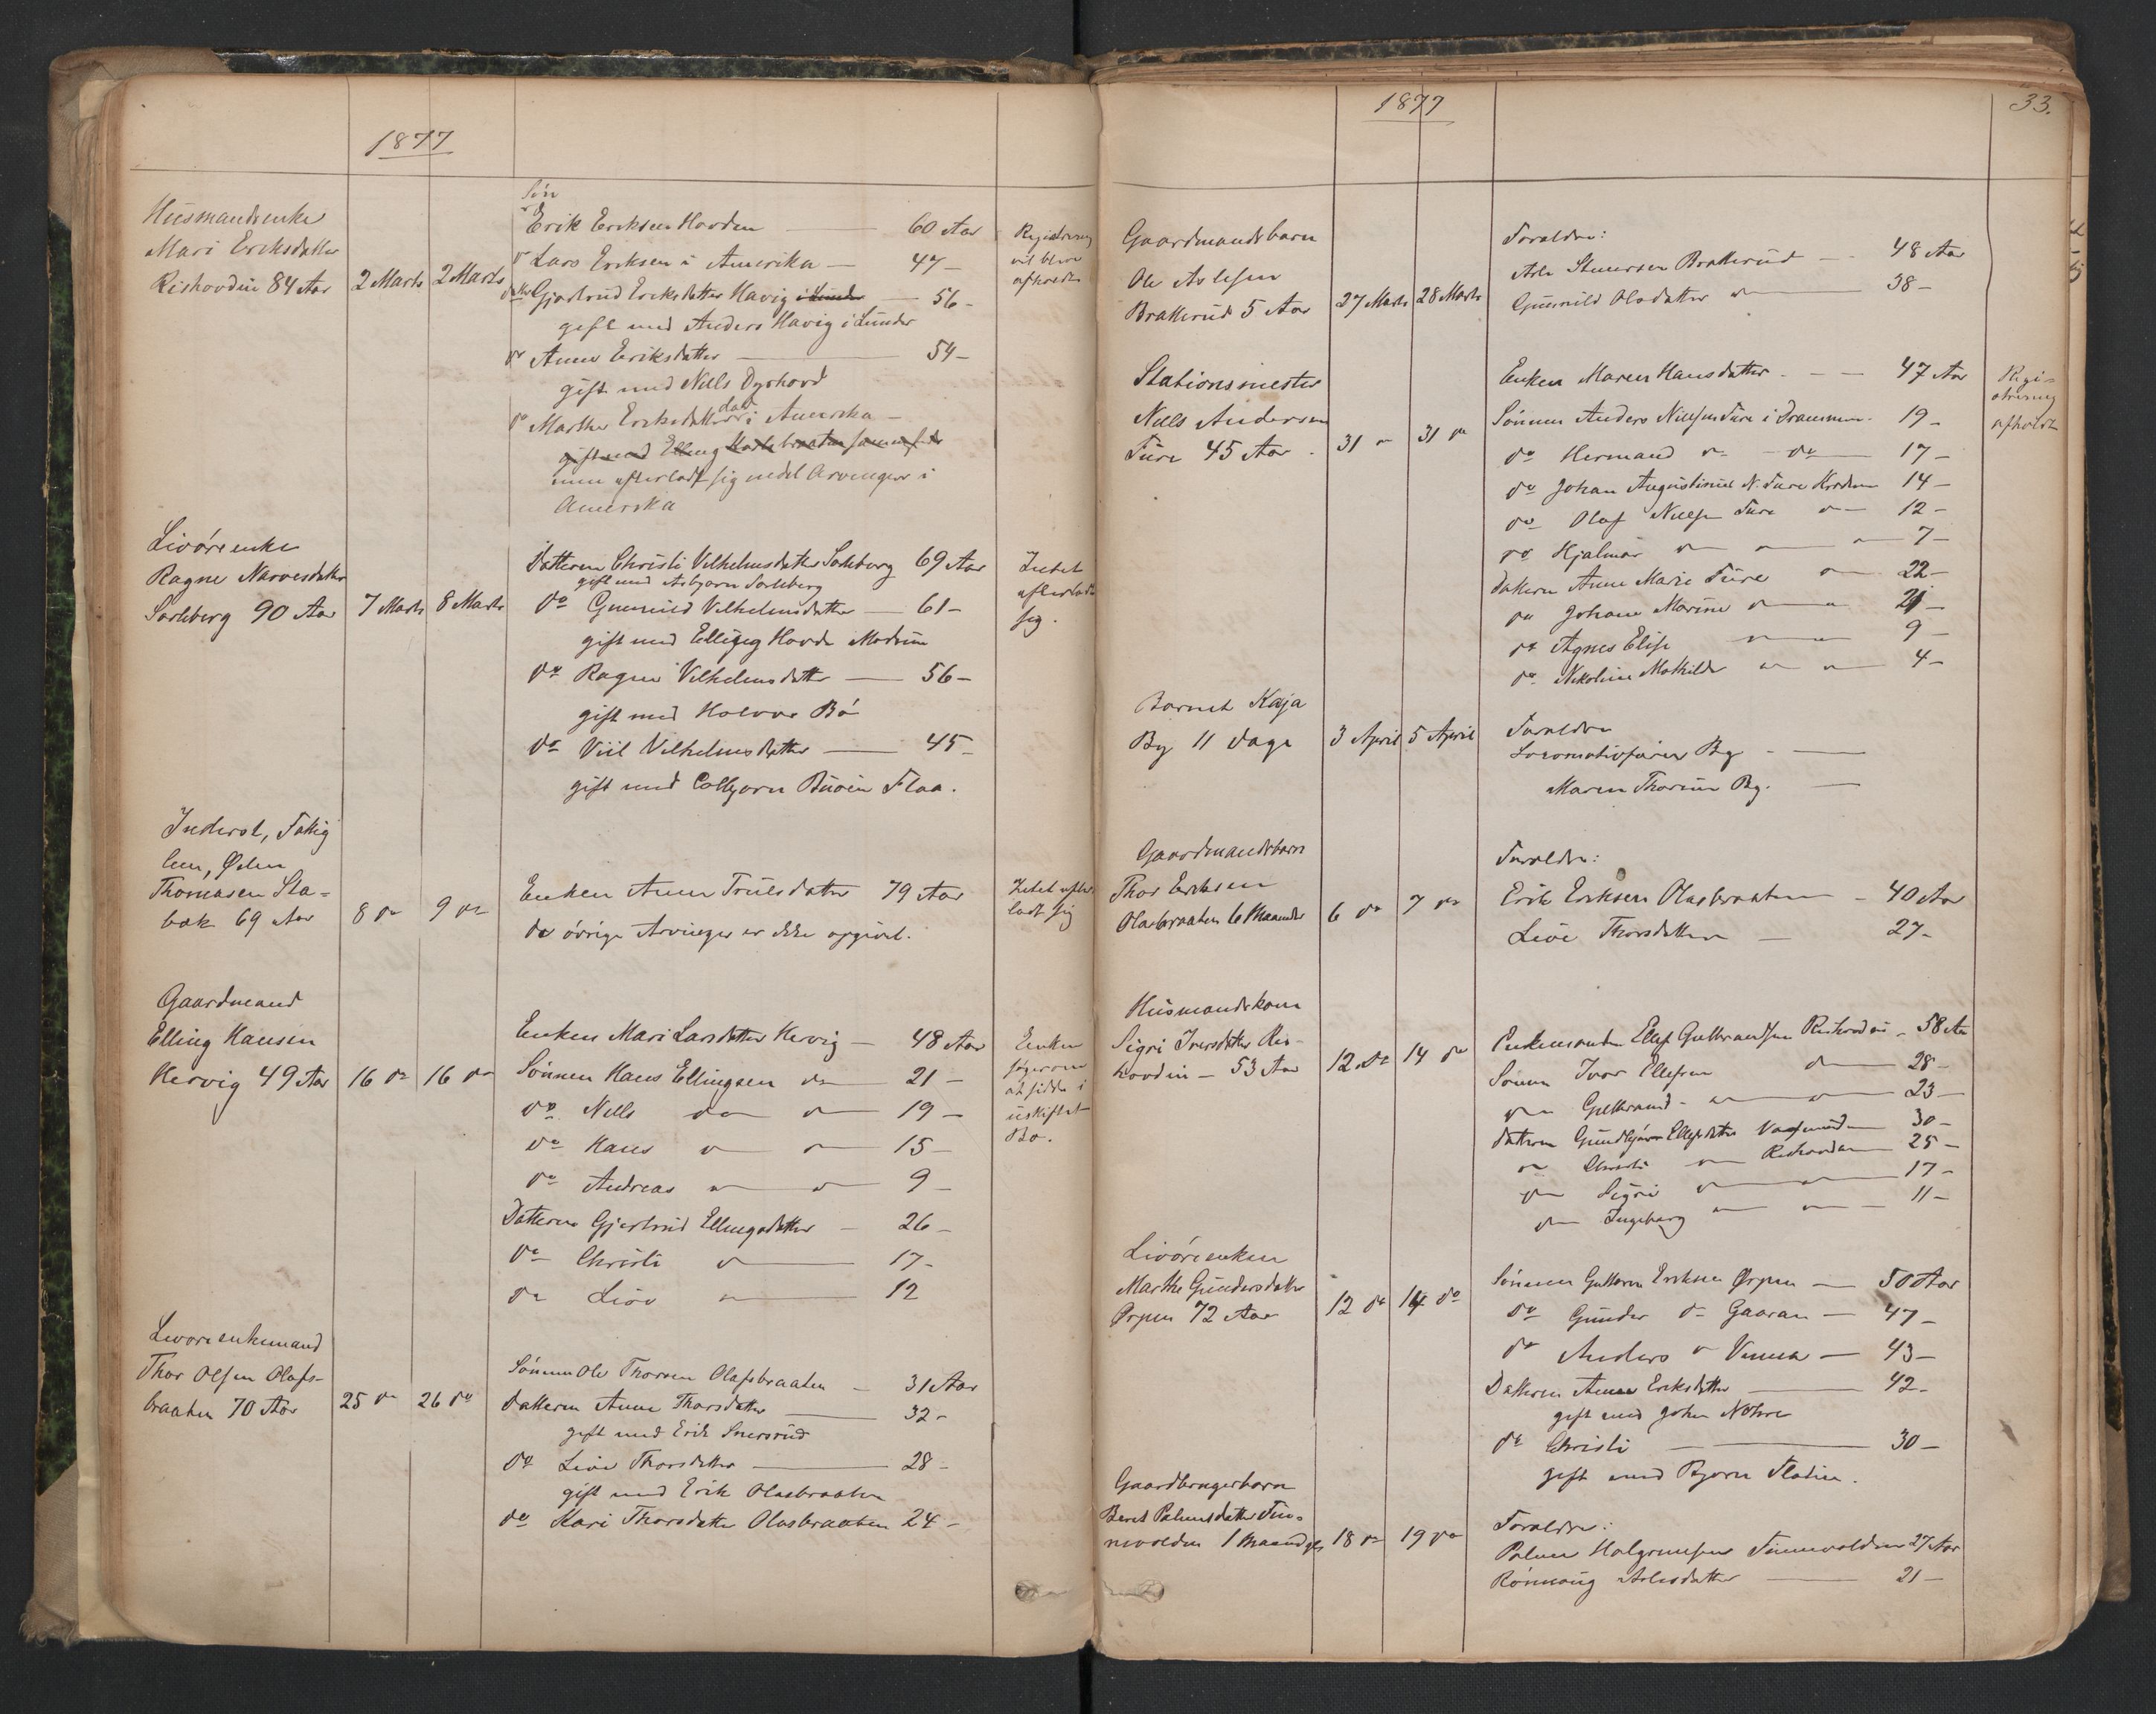 1877
Husmandsenke
Mari Eriksdatter
Rishovdeie 84 Aar
2 Marts
2 Marts
Søn
Erik Eriksen Hovden 60 Aar
do Lars Eriksen i Amerika 47 -
datter Gjertrud Eriksdatter Havig i Lunder 56 -
gift med Anders Havig i Lunder
do Anne Eriksdatter 54 -
gift med Niels Dyrhovd
do Marthe Eriksdatter død i Amerika -
gift med Elling
men efterladt sig endel Arvinger i
Amerika
Registrering
vil blive
afholdt
Livøreenke
Ragne Narvesdatter
Sorteberg 90 Aar
7 Marts
8 Marts
Datteren Christi Vilhelmsdatter Sorteberg 69 Aar
gift med Asbjørn Sorteberg
do Gunnild Vilhelmsdatter 61 -
gift med Elling Hovde Modum
do Ragne Vilhelmsdatter 56 -
gift med Halvor Bø
do Viil Vilhelmsdatter 45 -
gift med Colbjørn Buøin Flaa.
Intet
efterladt
sig.
Inderst, Fattig
lem, Østen
Thomasen Sta-
bæk 69 Aar
8 do
9 do
Enken Anne Truesdatter 79 Aar
de øvrige Arvinger er ikke opgivet.
Intet efter
ladt sig
Gaardmand
Elling Hansen
Hervig 49 Aar
16 do
16 do
Enken Mari Larsdatter Hervig 48 Aar
Sønnen Hans Ellingsen do 21 -
do Nells do do 19 -
do Hans do do 15 -
do Andreas do do 9 -
Datteren Gjertrud Ellingsdatter 26 -
do Christi do 17 -
do Live do 12
Enken
at sidde i
uskiftet
Bo.
Livøreenkemand
Thor Olsen Olafs-
braaten 70 Aar
25 do
26 do
Sønnen Ole Thorsen Olafsbraaten 31 Aar
Datteren Anne Thorsdatter 32 -
gift med Erik Snersrud
do Live Thorsdatter 28 -
gift med Erik Olasbraaten
do Kari Thorsdatter Olasbraaten 24 -
1877
33.
Gaardmandsbarn
Ole Aslesen
Bratterud 5 Aar
27 Marts
28 Marts
Forældre:
Asle Steenersen Bratterud 48 Aar
Gunnild Olsdatter do 38 -
Stationsmester
Niels Andersen
Ture 45 Aar
31 do
31 do
Enken Maren Hansdatter 47 Aar
Sønnen Anders Nielsen Ture i Drammen 19 -
do Hermand do do 17 -
do Johan Augustinus N. Ture 14 -
do Olaf Nielsen Ture do 12 -
do Hjalmar do do 7 -
datteren Anne Marie Ture do 22 -
do Johane Marine do 21 -
do Agnes Elise do 9 -
do Nikoline Mathilde do do 4 -
Regi-
strering
afholdt
Barnet Kaja
By 11 dage
3 April
5 April
Forældre
Locomotivfører By
Maren Thorine By.
Gaardmandsbarn
Thor Eriksen
Olasbraaten 6 Maaneder
6 do
7 do
Forældre:
Erik Eriksen Olasbraaten 40 Aar
Live Thorsdatter 27 -
Husmandskone
Sigri Iversdatter Ris-
hovdeie 53 Aar
12 do
14 do
Enkemanden Ellef Gulbrandsen Rishovdeie 58 Aar
Sønnen Iver Ellefsen do 28 -
do Gulbrand do do 23 -
datteren Gundbjør Ellefsdatter 30 -
do Christi do Rishovden 25 -
do Sigri do do 17 -
do Ingeborg do do 11 -
Livøreenken
Marthe Gundersdatter
Ørpen 72 Aar
12 do
14 do
Sønnen Guttorm Eriksen Ørpen 50 Aar
do Gunder do Gaaran 47 -
do Anders do 43 -
Datteren Anne Eriksdatter 42 -
gift med Johan
do Christi 30 -
gift med Bjørn Flatin.
Gaardbrugerbarn
Beret Palmesdatter Fin-
nevolden 1 Maaned gl.
18 do
19 do
Forældre:
Palme Halgrimsen Finnevolden 27 Aar
Rønnoug Aslesdatter 21 -